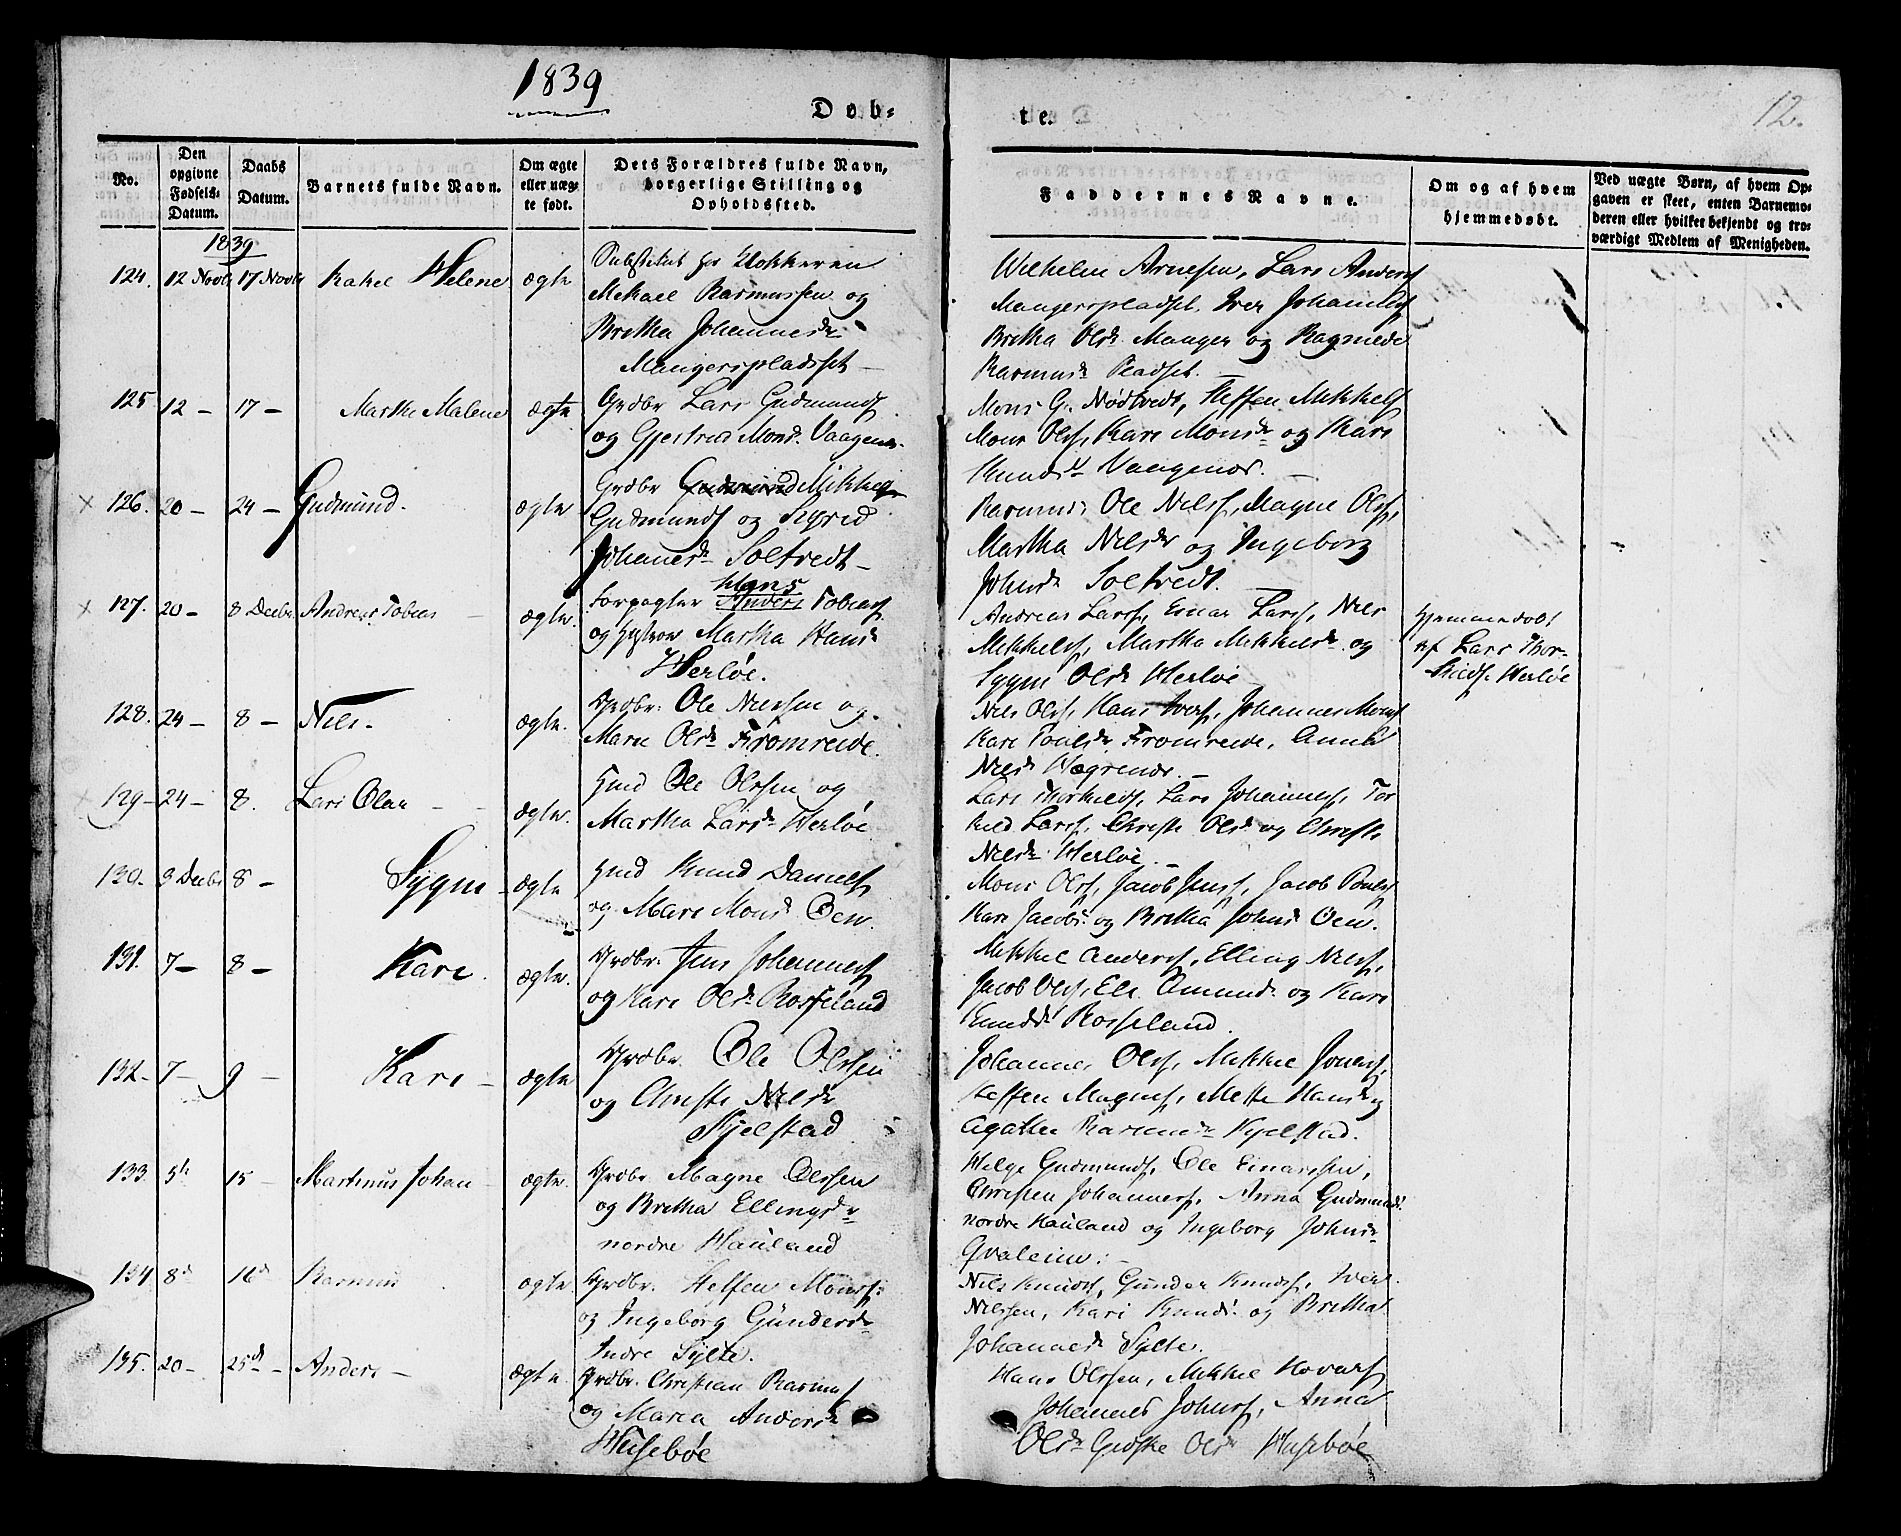 1839
Døb-
te.
12.
No.
Den opgivne Fødsels-Datum.
Daabs Datum.
Barnets fulde Navn.
Om ægte eller uæg-te født.
Dets Forældres fulde Navn, borgerlige Stilling og Opholdssted.
Faddernes Navne.
Om og af hvem hjemmedøbt.
Ved uægte Børn, af hvem Op-gaven er skeet, enten Barnemo-deren eller hvilket bekjendt og tro-værdigt Medlem af Menigheden.
1839
124. 12 Novbr 17 Novbr Rakel Helene ægte
Substitut for Klokkeren
Mikael Rasmussen og
Bretha Johannesdr
Mangerspladset
Wilhelm Arnesen, Lars Anders
Mangerspladset, Iver Johannes
Bretha Olsdr Manger og Ragnilde
Rasmusdr Pladset.
125 12 - 17 - Marthe Malene ægte
Grdbr Lars Gudmunds
og Gjertrud Monsdr Vaagenes.
Mons G. Nødtvedt, Steffen Mikkels
Mons Ols, Kari Monsdr og Kari
Knudsdr Vaagenes.
x 126. 20 - 24 - Gudmund. ægte
Grdbr Gudmund Mikkel
Gudmunds og Sigrid
Johanesdr Soltvedt -
Rasmus Ole Nilss, Magne Ols,
Martha Nilsdr og Ingeborg
Johnsdr Soltvedt.
x 127. 20 - 8 Decbr Andreas Tobias ægte.
Hans
Forpagter Anders Tobias
og Hustrue Martha Hansdr
Herløe.
Andreas Larss, Einar Larss, Nils
Mikkels, Martha Mikkelsdr og
Sygni Olsdr Herløe
Hjemmedøbt
af Lars Thor-
kilds Herløe
128. 24 - 8 - Nils. ægte.
Grdbr. Ole Nilssen og
Mari Olsdr Fromreide.
Nils Ols, Hans Ivers, Johannes Mons
Kari Poulsdr Fromreide, Anna
Nilsdr Hægrenæs.
129 - 24 - 8. Lars Olai - ægte.
Hmd Ole Olssen og
Martha Larsdr Herløe
Lars Thorkilds, Lars Johannes, Tor
kild Larss, Christi Olsdr og Christi
Nilsdr Herløe.
130. 3 Decbr 8 - Sygni - ægte
Hmd Knud Daniels
og Mari Monsdr Oen.
Mons Ols, Jacob Jens, Jacob Pouls
Kari Jacobsdr og Bretha Johnsdr Oen.
131. 7 - 8 - Kari. ægte.
Grdbr. Jens Johannes
og Kari Olsdr Rosseland
Mikkel Anders, Elling Nils,
Jacob Ols, Eli Amundsdr og Kari
Knudsdr Rosseland.
132 - 7 - 9 - Kari - ægte
Grdbr. Ole Olssen
og Christi Nilsdr
Kjelstad
Johannes Ols, Mikkel Jons,
Steffen Magnes, Mette Hansdr og
Agathe Rasmusdr Kjelstad.
133. 5te 15 - Martinus Johan - ægte.
Grdbr Magne Olssen
og Bretha Ellingsdr
nordre Hauland
Helge Gudmunds, Ole Einarssen,
Christen Johannes, Anna Gudmunds
nordre Hauland og Ingeborg Johnsdr
Qvaleim. -
134 8de 16de Rasmus ægte
Grdbr. Steffen Mons
og Ingeborg Gundersdr
Indre Sylte.
Nils Knuds, Gunder Knuds, Iver
Nilssen, Kari Knudsdr og Bretha
Johannesdr Sylte.
135. 20 - 25de - Anders - ægte.
Grdbr. Christian Rasmus
og Maria Andersdr
Husebøe
Hans Olssen, Mikkel Hovars
Johannes Johns, Anna
Olsdr Gjøske Olsdr Husebøe